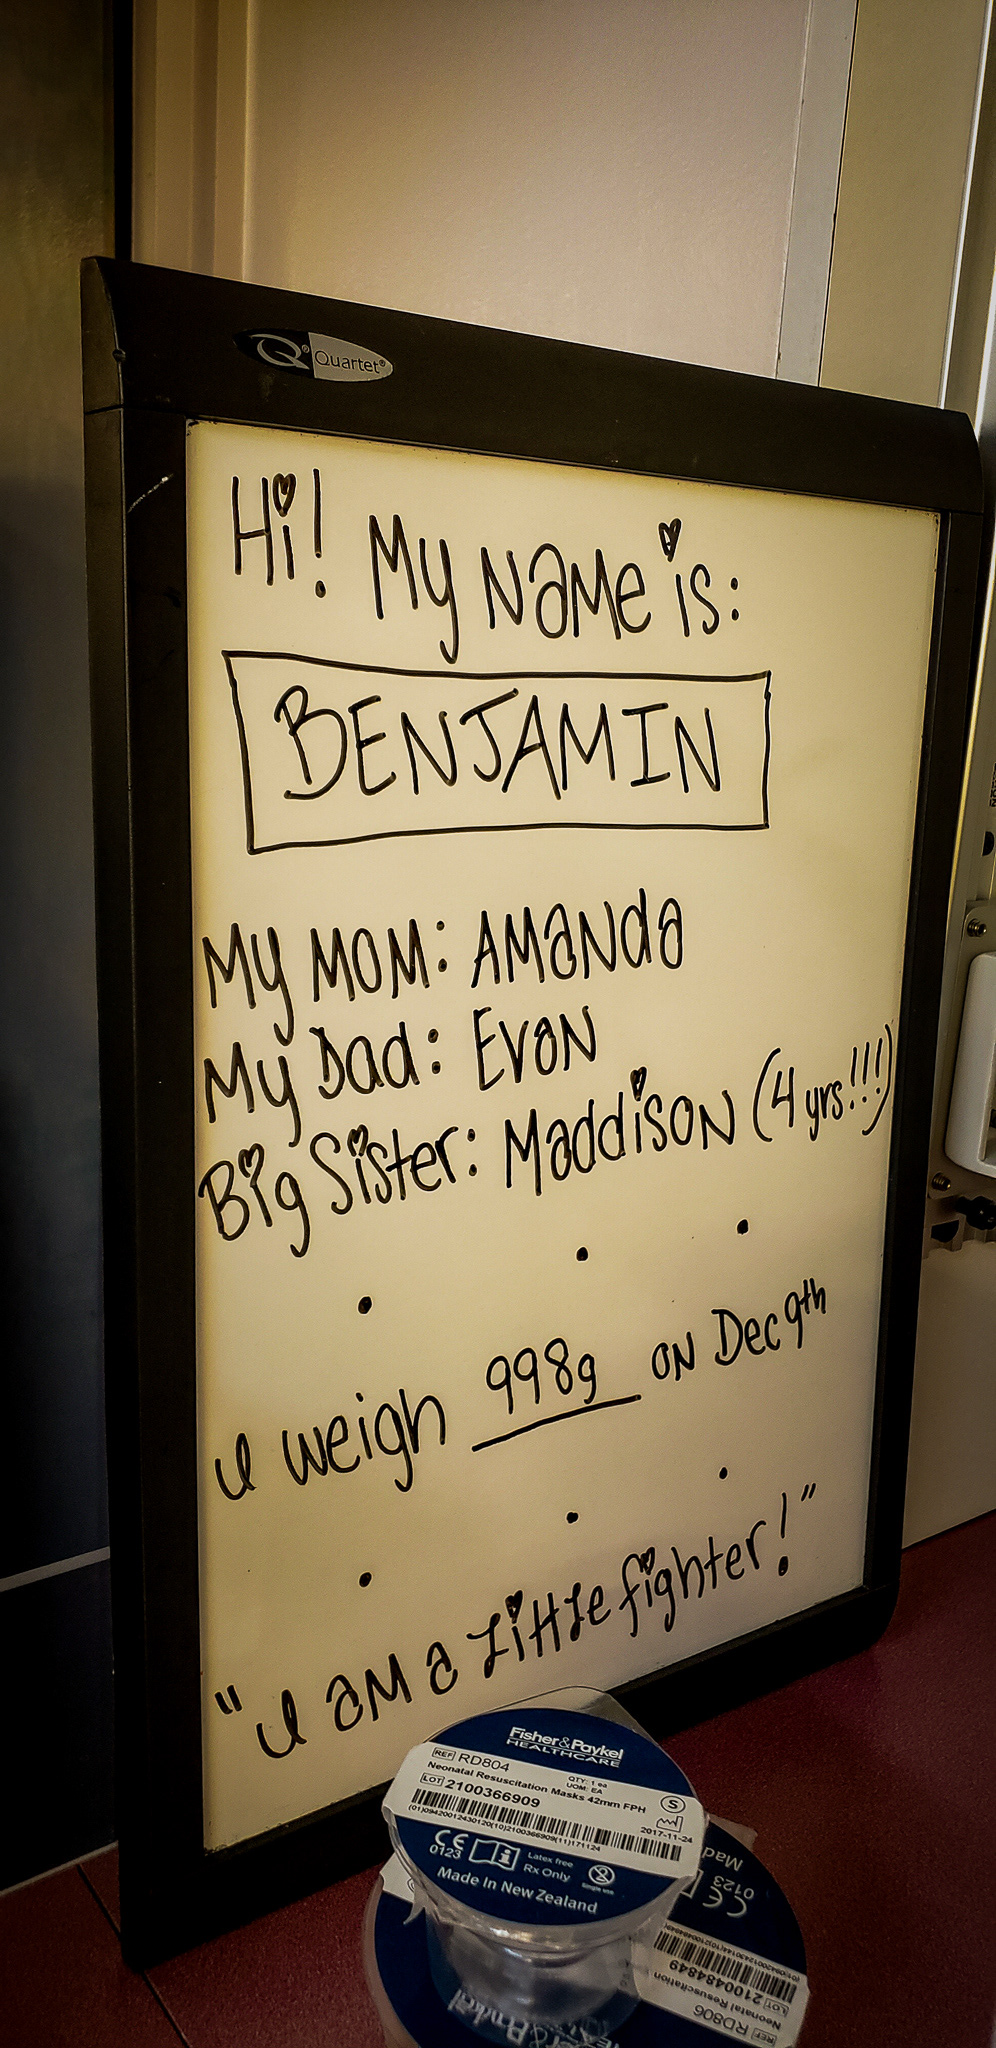 Quartet®
Hi! My name is:
BENJAMIN
My Mom: Amanda
My Dad: Evan
Big Sister: Maddison (4 yrs!!!)
u weigh 998g on Dec 9th
"u am a little fighter!"
Fisher & Paykel
HEALTHCARE
REF RD804
QTY: 1 ea
UOM: EA
Neonatal Resuscitation Masks 42mm FPH
LOT 2100366909
S
2017-11-24
(01)09420012430120(10)2100366909(11)171124
CE
0123
Latex free
Rx Only
Single use
Made In New Zealand
Mad
CE
0123
LOT 2100484849
Neonatal Resuscitation
REF RD806